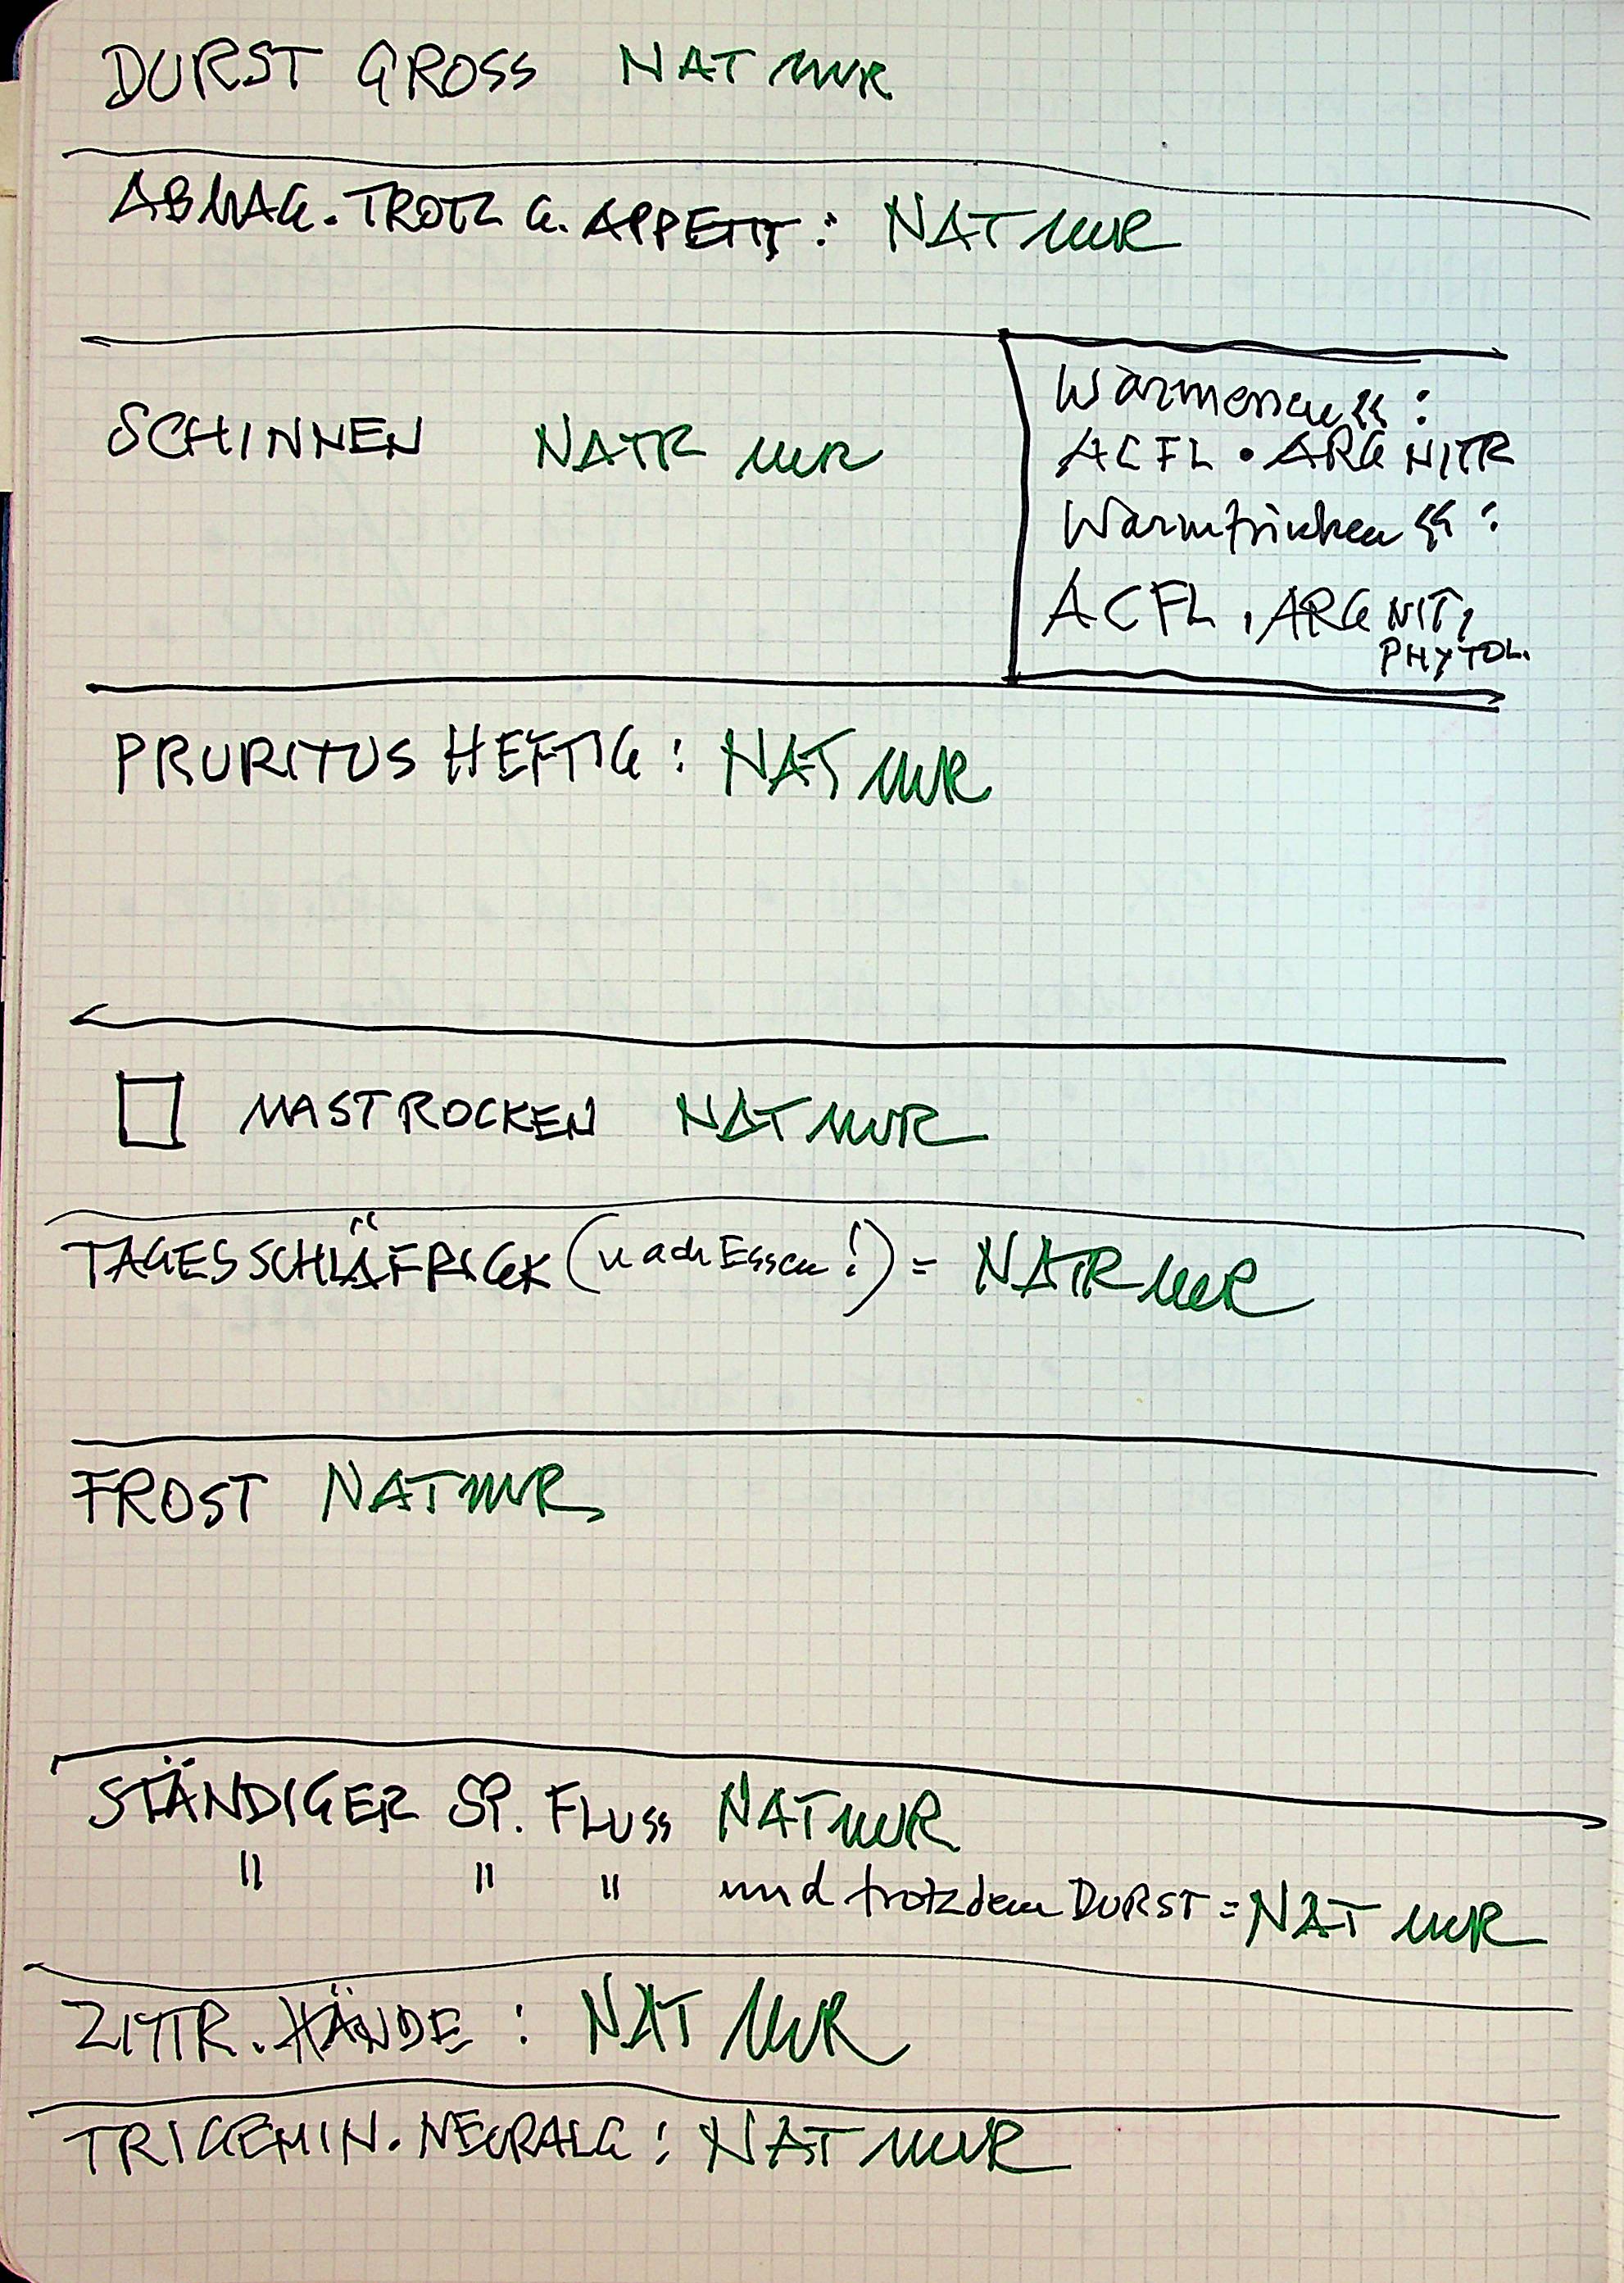 DURST GROSS NAT MUR
ABMAG. TROTZ G. APPETIT: NAT MUR
SCHINNEN NATR MUR
Warmessen << :
AC FL . ARG NITR
Warmtrinken << :
AC FL , ARG NIT,
PHYTOL.
PRURITUS HEFTIG: NAT MUR
MASTROCKEN NAT MUR
TAGESSCHLÄFRIGK (nach Essen!) = NATR MUR
FROST NAT MUR
STÄNDIGER SP. FLUSS NAT MUR
" " " und trotzdem DURST = NAT MUR
ZITTR. HÄNDE : NAT MUR
TRIGEMIN. NEURALG: NAT MUR